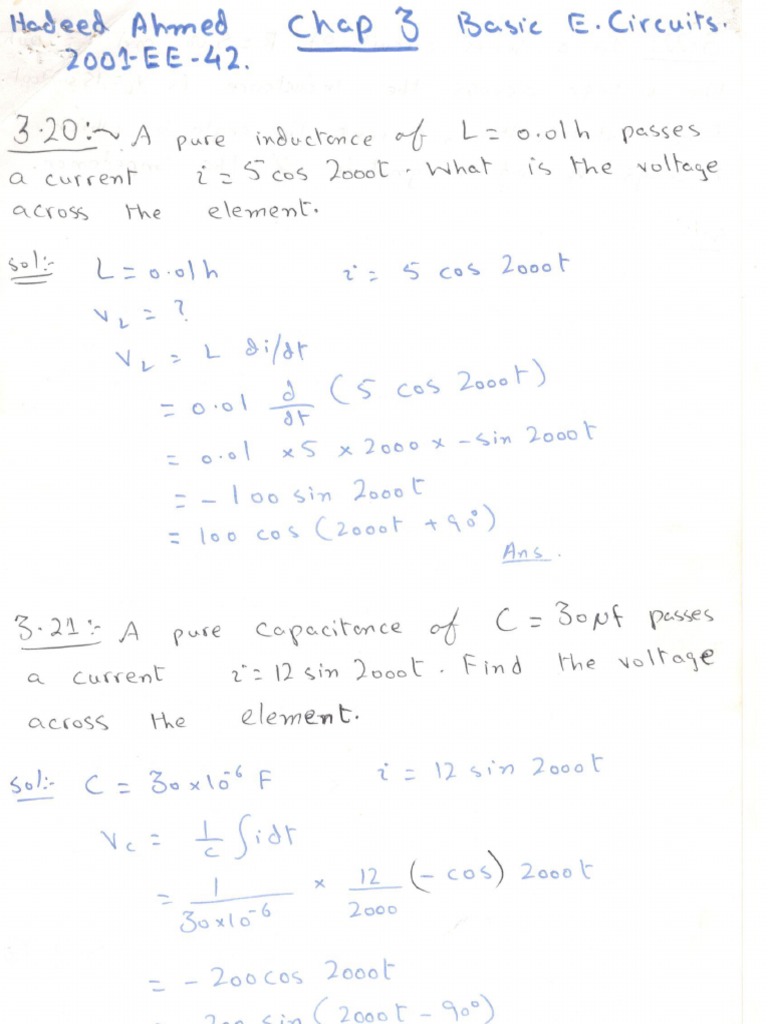 Hadeed Ahmed Chap 3 Basic E. Circuits.
2001-EE-42.
3.20:~ A pure inductance of L = 0.01h passes
a current i = 5 cos 2000t. What is the voltage
across the element.
Sol:- L = 0.01h i = 5 cos 2000t
V_L = ?
V_L = L di/dt
= 0.01 d/dt (5 cos 2000t)
= 0.01 x5 x 2000 x - sin 2000t
= - 100 sin 2000t
= 100 cos (2000t + 90°)
Ans.
3.21:- A pure capacitance of C = 30μf passes
a current i = 12 sin 2000t. Find the voltage
across the element.
Sol:- C = 30x10^-6 F i = 12 sin 2000t
V_c = 1/c ∫idt
= 1/30x10^-6 x 12/2000 (- cos) 2000t
= - 200 cos 2000t
= 200 sin (2000t - 90°)